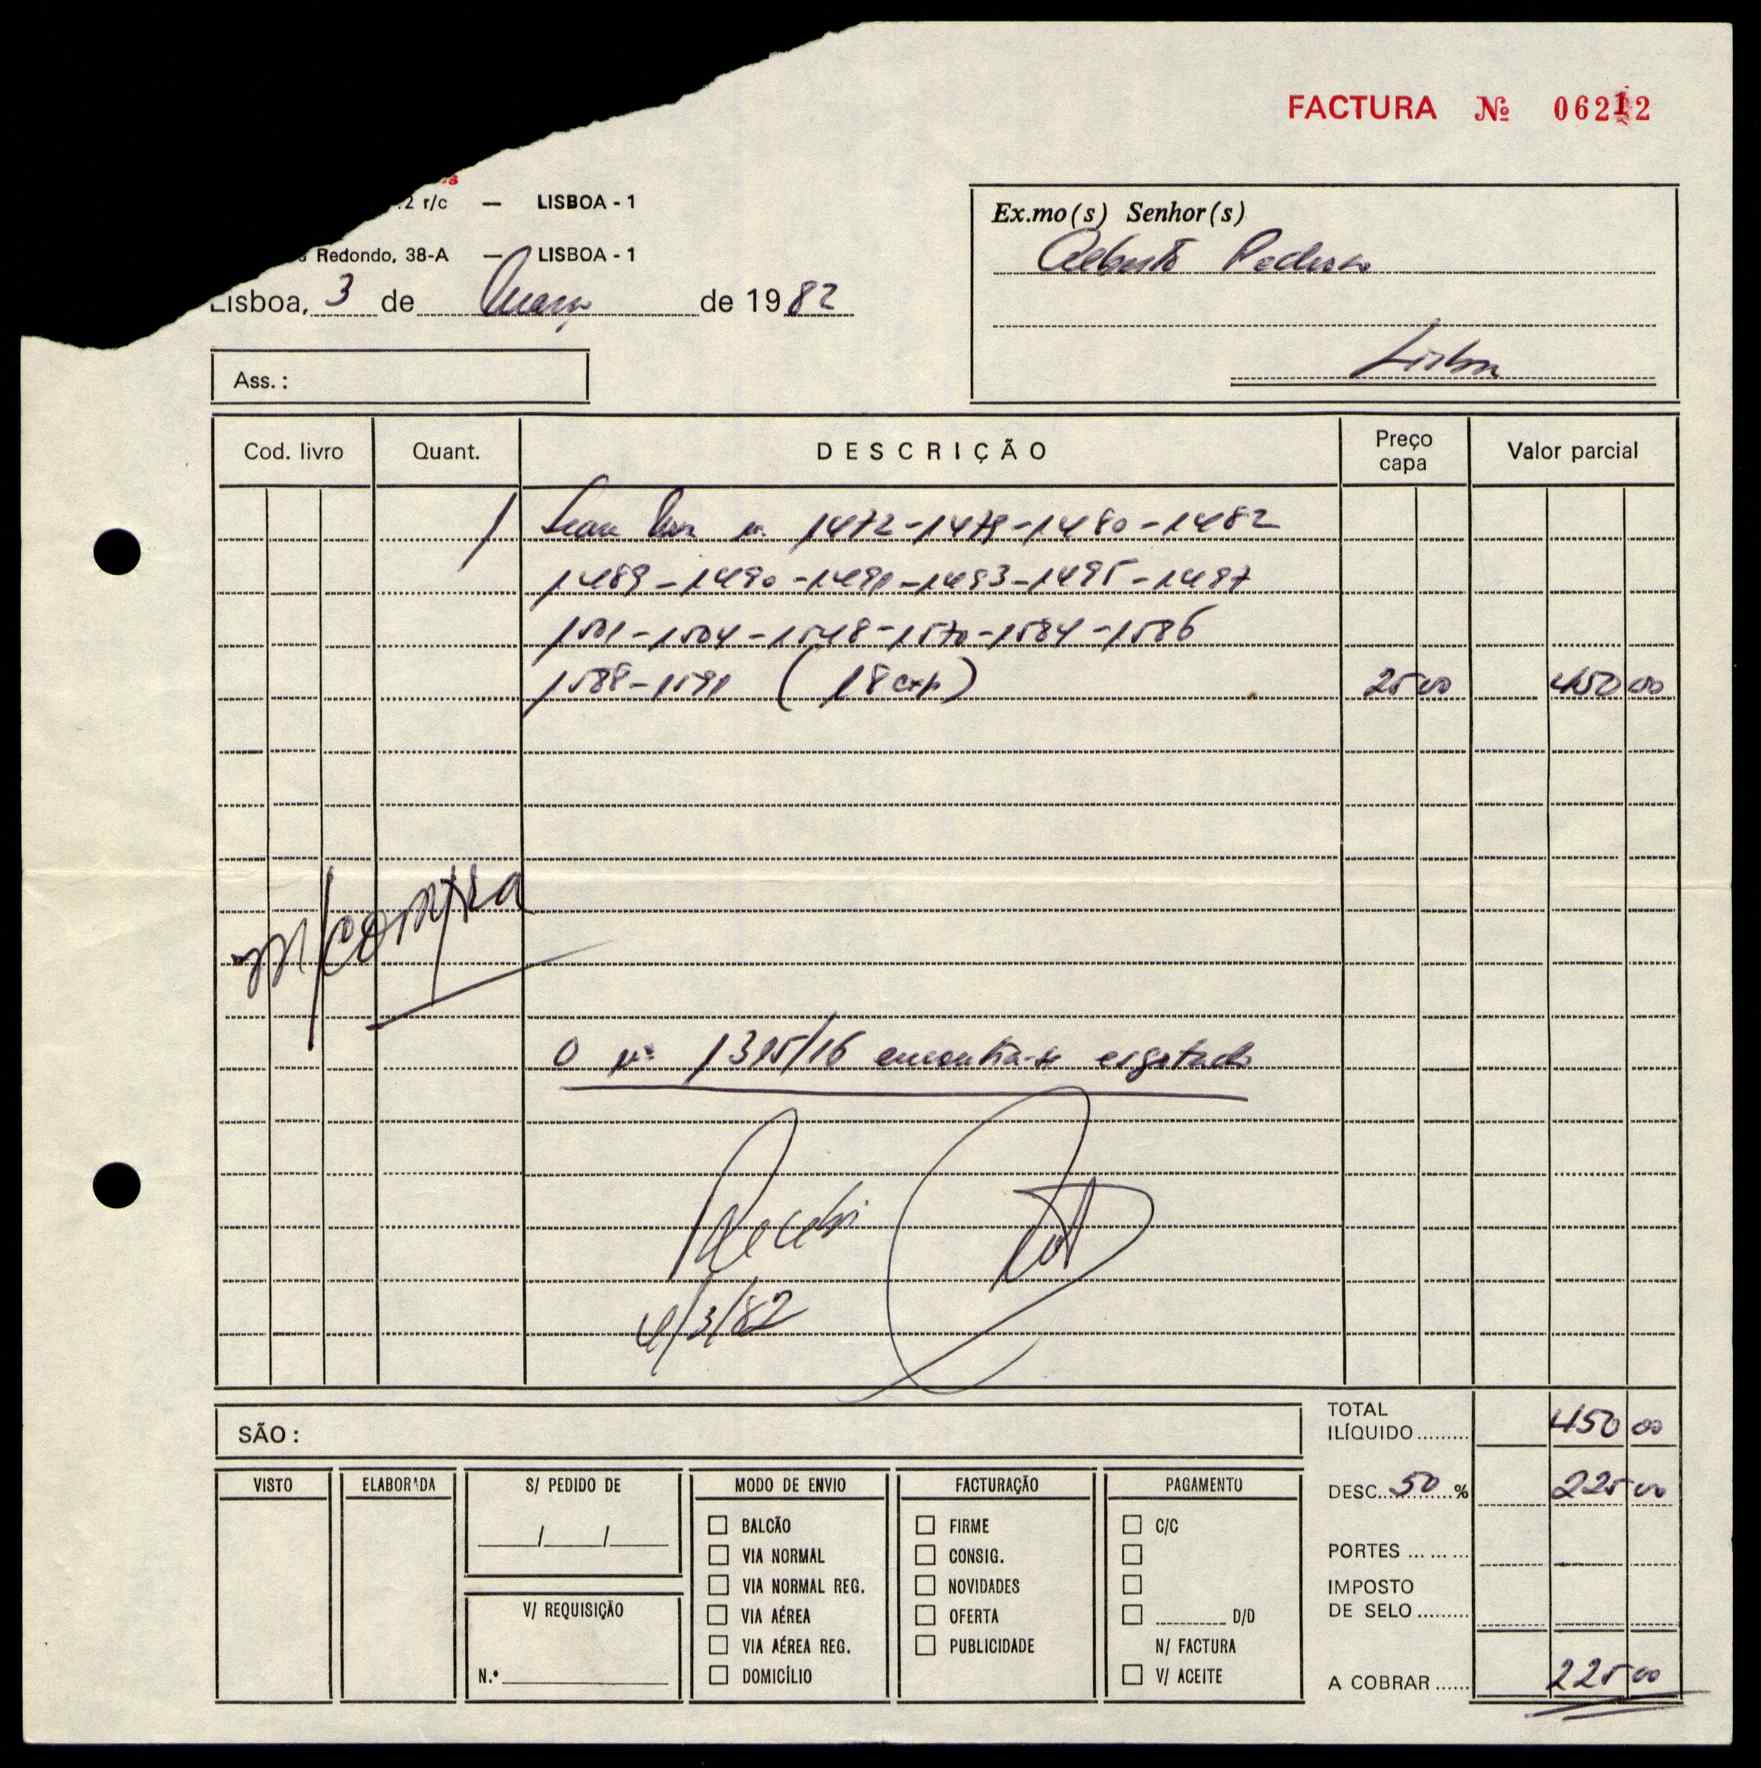 FACTURA Nº 06212
r/c — LISBOA - 1
Redondo, 38-A — LISBOA - 1
Lisboa, 3 de Março de 1982
Ex.mo(s) Senhor(s)
Alberto Pedroso
Lisboa
Ass.:
Cod. livro Quant. DESCRIÇÃO Preço capa Valor parcial
1 Seara Nova n. 1472-1479-1480-1482
1489-1490-1491-1493-1495-1497
1501-1504-1548-1570-1584-1586
1588-1591 (18 exp) 25 00 450 00
m/compra
O nº 1315/16 encontra-se esgotado
Recebi
4/3/82
SÃO:
TOTAL
ILÍQUIDO......... 450 00
DESC. 50 % 225 00
PORTES ... ... ...
IMPOSTO
DE SELO .........
A COBRAR ...... 225 00
VISTO
ELABORADA
S/ PEDIDO DE
/ /
V/ REQUISIÇÃO
N.º
MODO DE ENVIO
BALCÃO
VIA NORMAL
VIA NORMAL REG.
VIA AÉREA
VIA AÉREA REG.
DOMICÍLIO
FACTURAÇÃO
FIRME
CONSIG.
NOVIDADES
OFERTA
PUBLICIDADE
PAGAMENTO
C/C
D/D
N/ FACTURA
V/ ACEITE